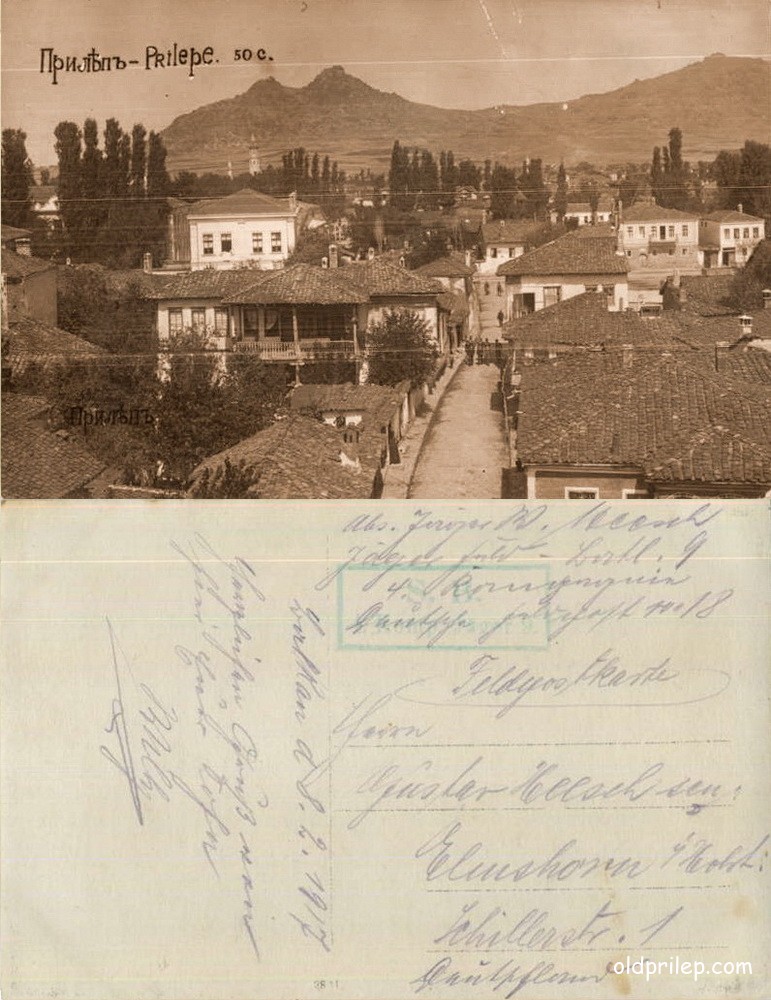 Прилѣпъ - Prilepe. 50 c.
Прилѣпъ
Abs. Jäger W. Meesch
Jäger Feld - Batl. 9
4. Kompagnie
Deutsche Feldpost No 18
S. B.
Feldpostkarte
Herrn
Gustav Meesch sen.
Elmshorn i/Holst.
Schillerstr. 1
Deutschland
Balkan d 8. 2. 1917
Herzlichen Gruß von
Euer Sohn
Willy
oldprilep.com